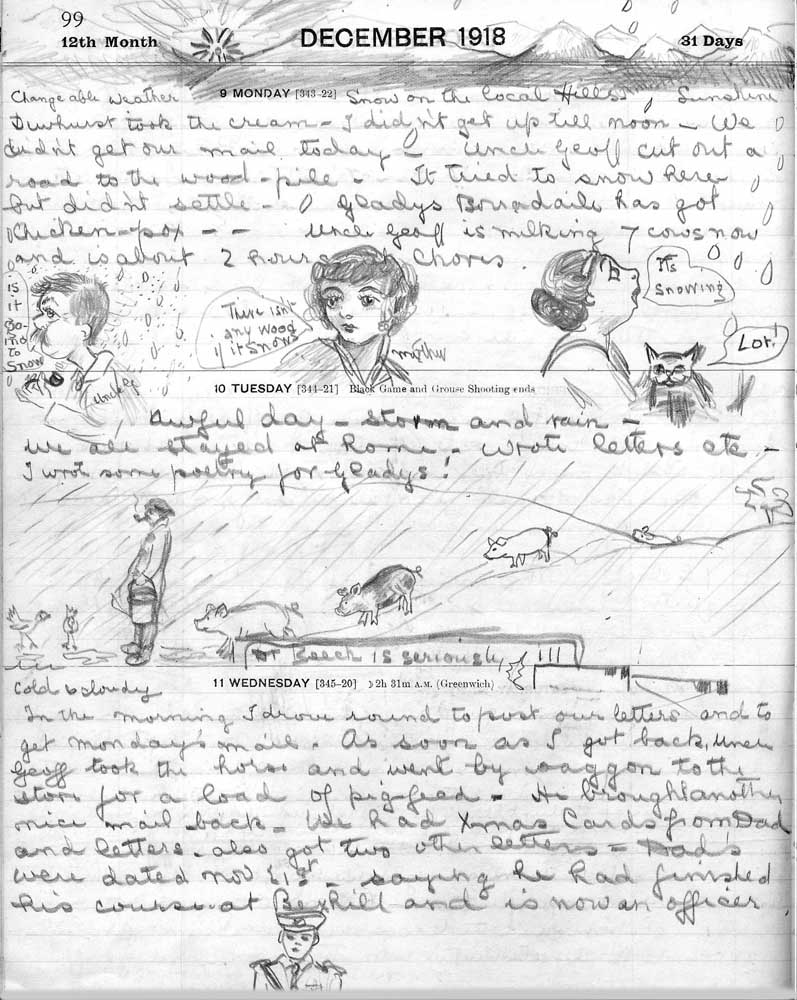 99
12th Month
DECEMBER 1918
31 Days
Changeable weather 9 MONDAY [343-22] Snow on the local Hills, Sunshine
Dewhurst took the cream - I did'nt get up till noon - We
did'nt get our mail today - Uncle Geoff cut out a
road to the wood-pile - It tried to snow here
but did'nt settle - Gladys has got
Chicken-pox - - Uncle Geoff is milking 7 cows now
and is about 2 hours Chores.
IS
it
Go-
ing
to
Snow
There isn't
any wood
if it snows
mother
It's
snowing
Lor!
Uncle G
10 TUESDAY [344-21] Black Game and Grouse Shooting ends
Awful day - storm and rain -
we all stayed at home - wrote letters etc -
I wrote some poetry for Gladys!
Beech is seriously
11 WEDNESDAY [345-20] ☽ 2h 31m A.M. (Greenwich)
Cold & cloudy
In the morning I drove round to post our letters and to
get monday's mail. As soon as I got back, Uncle
Geoff took the horse and went by waggon to the
store for a load of pig-feed - He brought another
nice mail back - We had Xmas Cards from Dad
and letters. also got two other letters - Dad's
were dated nov 21st - saying he had finished
his course at Bexhill and is now an officer